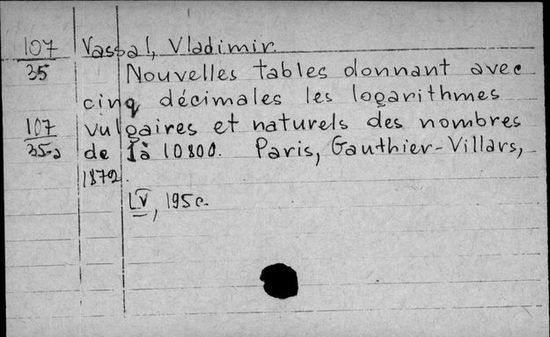 107 Vassal, Vladimir.
35 Nouvelles tables donnant avec
cinq décimales les logarithmes
107 vulgaires et naturels des nombres
35-a de 1 à 10800. Paris, Gauthier-Villars,
1872.
LV, 195 c.